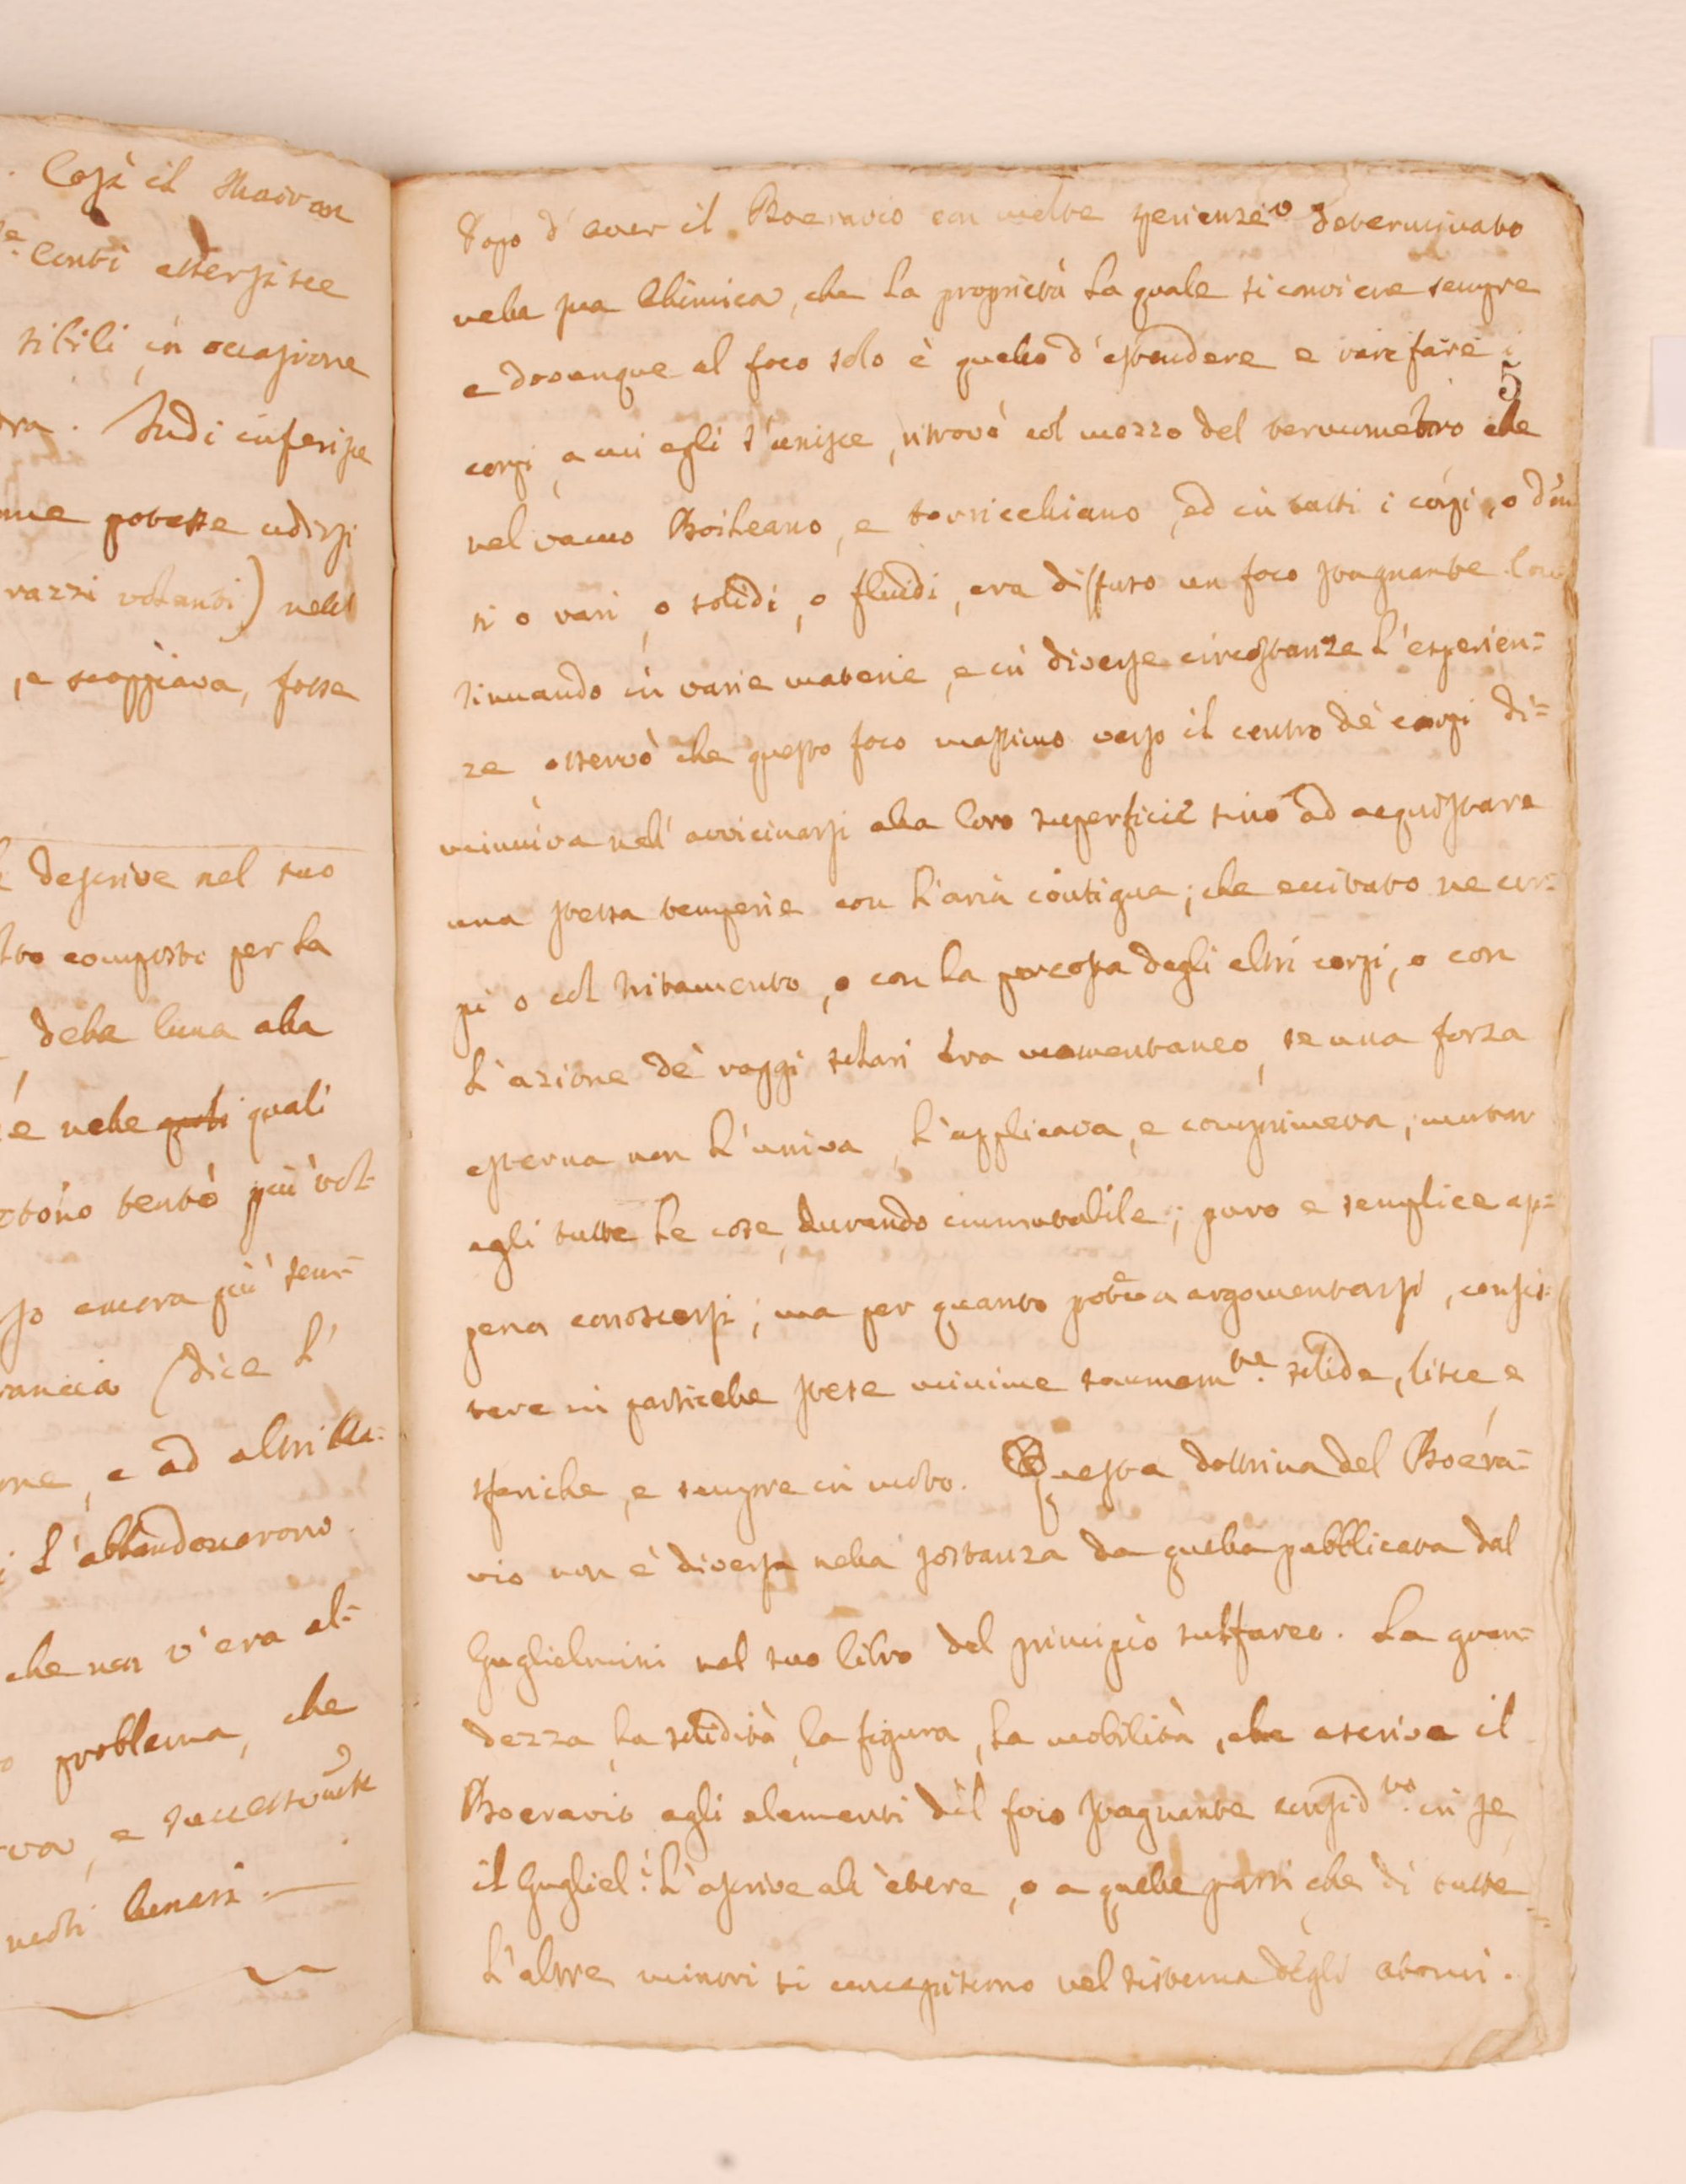 . Così il Mairan
Conti asserisce
sibili, in occasione
ora. Indi inferisce
me potesse udirsi
razzi volanti) nell
, e scoppiava, fosse
descrive nel suo
tro composto per la
della luna alla
e nelle quali
tono tentò più vol-
so ancora più sem-
rancia (dice l'
one, e ad altri
i l'abbandonarono.
che non v'era al-
o problema, che
va, e
moti lunari.
Dopo d'aver il Boeravio con molte sperienze determinato
nella sua Chimica, che la proprietà la quale si conviene sempre
e dovunque al foco solo è quella d'estendere e rarefare i
5
corpi a cui egli s'unisce, ritrovò col mezzo del termometro che
nel vacuo Boileano, e torricelliano, ed in tutti i corpi, o den
si o rari, o solidi, o fluidi, era diffuso un foco stagnante. Con
tinuando in varie materie, e in diverse circostanze l'esperien=
ze osservò che questo foco massimo verso il centro de' corpi di=
minuiva nell'avvicinarsi alla loro superficie sino ad acquistare
una stessa temperie con l'aria contigua; che eccitato ne cor=
pi o col tritamento, o con la percossa degli altri corpi, o con
l'azione de' raggi solari era momentaneo, se una forza
esterna non l'univa, l'applicava, e comprimeva; mutar
egli tutte le cose, durando immutabile; puro e semplice ap=
pena conoscersi; ma per quanto potea argomentarsi, consis=
tere in particelle stese minime sommam.te solide, lisce e
sferiche, e sempre in moto. Questa dottrina del Boera=
vio non è diversa nella sostanza da quella pubblicata dal
Guglielmini nel suo libro del principio sulfureo. La gran=
dezza, la solidità, la figura, la mobilità, che ascrive il
Boeravio agli elementi del foco stagnante in se
il Gugliel.i l'ascrive all'etere, o a quelle parti che di tutte
l'altre minori si concepiscono nel sistema degli atomi.